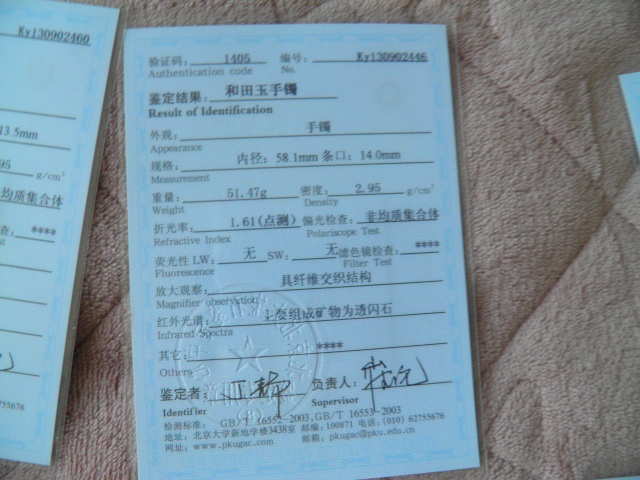 Ky130902460
13.5mm
95 g/cm³
均质集合体
****
55676
验证码: 1405 编号: Ky130902446
Authentication code No.
鉴定结果: 和田玉手镯
Result of Identification
外观: 手镯
Appearance
规格: 内径: 58.1mm 条口: 14.0mm
Measurement
重量: 51.47g 密度: 2.95 g/cm³
Weight Density
折光率: 1.61(点测) 偏光检查: 非均质集合体
Refractive Index Polariscope Test
荧光性 LW: 无 SW: 无 滤色镜检查: ****
Fluorescence Filter Test
放大观察: 具纤维交织结构
Magnifier observation
红外光谱: 主要组成矿物为透闪石
Infrared Spectra
其它: ****
Others
鉴定者: 负责人:
Identifier Supervisor
检测标准: GB/T 16552-2003,GB/T 16553-2003
地址: 北京大学新地学楼3438室 邮编: 100871 电话: (010) 62755676
网址: www.pkugac.com 邮箱: pkugac@pku.edu.cn